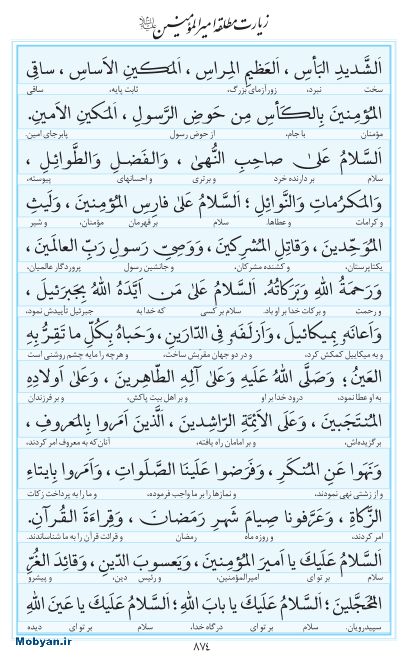 زیارت مطلقه امیرالمؤمنین علیه السلام
اَلشَّدیدِ البَأْسِ ، اَلعَظیمِ المِراسِ ، اَلمَکینِ الاَساسِ ، ساقِی
سخت نبرد، زورآزمای بزرگ، ثابت پایه، ساقی
المُؤمِنینَ بِالکَأْسِ مِن حَوضِ الرَّسولِ ، المَکینِ الاَمینِ.
مؤمنان با جام، از حوض رسول پابرجای امین.
اَلسَّلامُ عَلىٰ صاحِبِ النُّهىٰ ، وَالفَضلِ وَالطَّوائِلِ ،
سلام بر دارنده خرد و برتری و احسانهای پیوسته،
وَالمَکرُماتِ وَالنَّوائِلِ ؛ اَلسَّلامُ عَلىٰ فارِسِ المُؤمِنینَ ، وَلَیثِ
و کرامات و عطاها. سلام بر قهرمان مؤمنان، و شیر
المُوَحِّدینَ ، وَقاتِلِ المُشرِکینَ ، وَوَصِیِّ رَسولِ رَبِّ العالَمینَ ،
یکتاپرستان، و کشنده مشرکان، و جانشین رسول پروردگار عالمیان،
وَرَحمَةُ اللهِ وَبَرَکاتُهُ. اَلسَّلامُ عَلىٰ مَن اَیَّدَهُ اللهُ بِجَبرَئیلَ ،
و رحمت و برکات خدا بر او باد. سلام بر کسی که خدا به جبرئیل تأییدش نمود،
وَاَعانَهُ بِمیکائیلَ ، وَاَزلَفَهُ فِی الدّارَینِ ، وَحَباهُ بِکُلِّ ما تَقِرُّ بِهِ
و به میکاییل کمکش کرد، و در دو جهان مقربش ساخت، و هرچه را مایه چشم روشنی است
العَینُ ؛ وَصَلَّى اللهُ عَلَیهِ وَعَلىٰ آلِهِ الطّاهِرینَ ، وَعَلىٰ اَولادِهِ
به او عطا نمود، درود خدا بر او و بر اهل بیت پاکش، و بر فرزندان
المُنتَجَبینَ ، وَعَلَى الاَئِمَّةِ الرّاشِدینَ ، اَلَّذینَ اَمَروا بِالمَعروفِ ،
برگزیده‌اش، و بر امامان راه یافته، آنان‌که به معروف امر کردند،
وَنَهَوا عَنِ المُنکَرِ ، وَفَرَضوا عَلَینَا الصَّلَواتِ ، وَاَمَروا بِایتاءِ
و از زشتی نهی نمودند، و نمازها را بر ما واجب فرموده، و ما را به پرداخت زکات
الزَّکاةِ ، وَعَرَّفونا صِیامَ شَهرِ رَمَضانَ ، وَقِراءَةَ القُرآنِ.
امر کردند، و روزه ماه رمضان و قرائت قرآن را به ما شناساندند.
اَلسَّلامُ عَلَیکَ یا اَمیرَ المُؤمِنینَ ، وَیَعسوبَ الدّینِ ، وَقائِدَ الغُرِّ
سلام بر تو ای امیرالمؤمنین، و رئیس دین، و پیشرو
المُحَجَّلینَ؛ اَلسَّلامُ عَلَیکَ یا بابَ اللهِ؛ اَلسَّلامُ عَلَیکَ یا عَینَ اللهِ
سپیدرویان. سلام بر تو ای درگاه خدا. سلام بر تو ای دیده
Mobyan.ir
۸۷٤